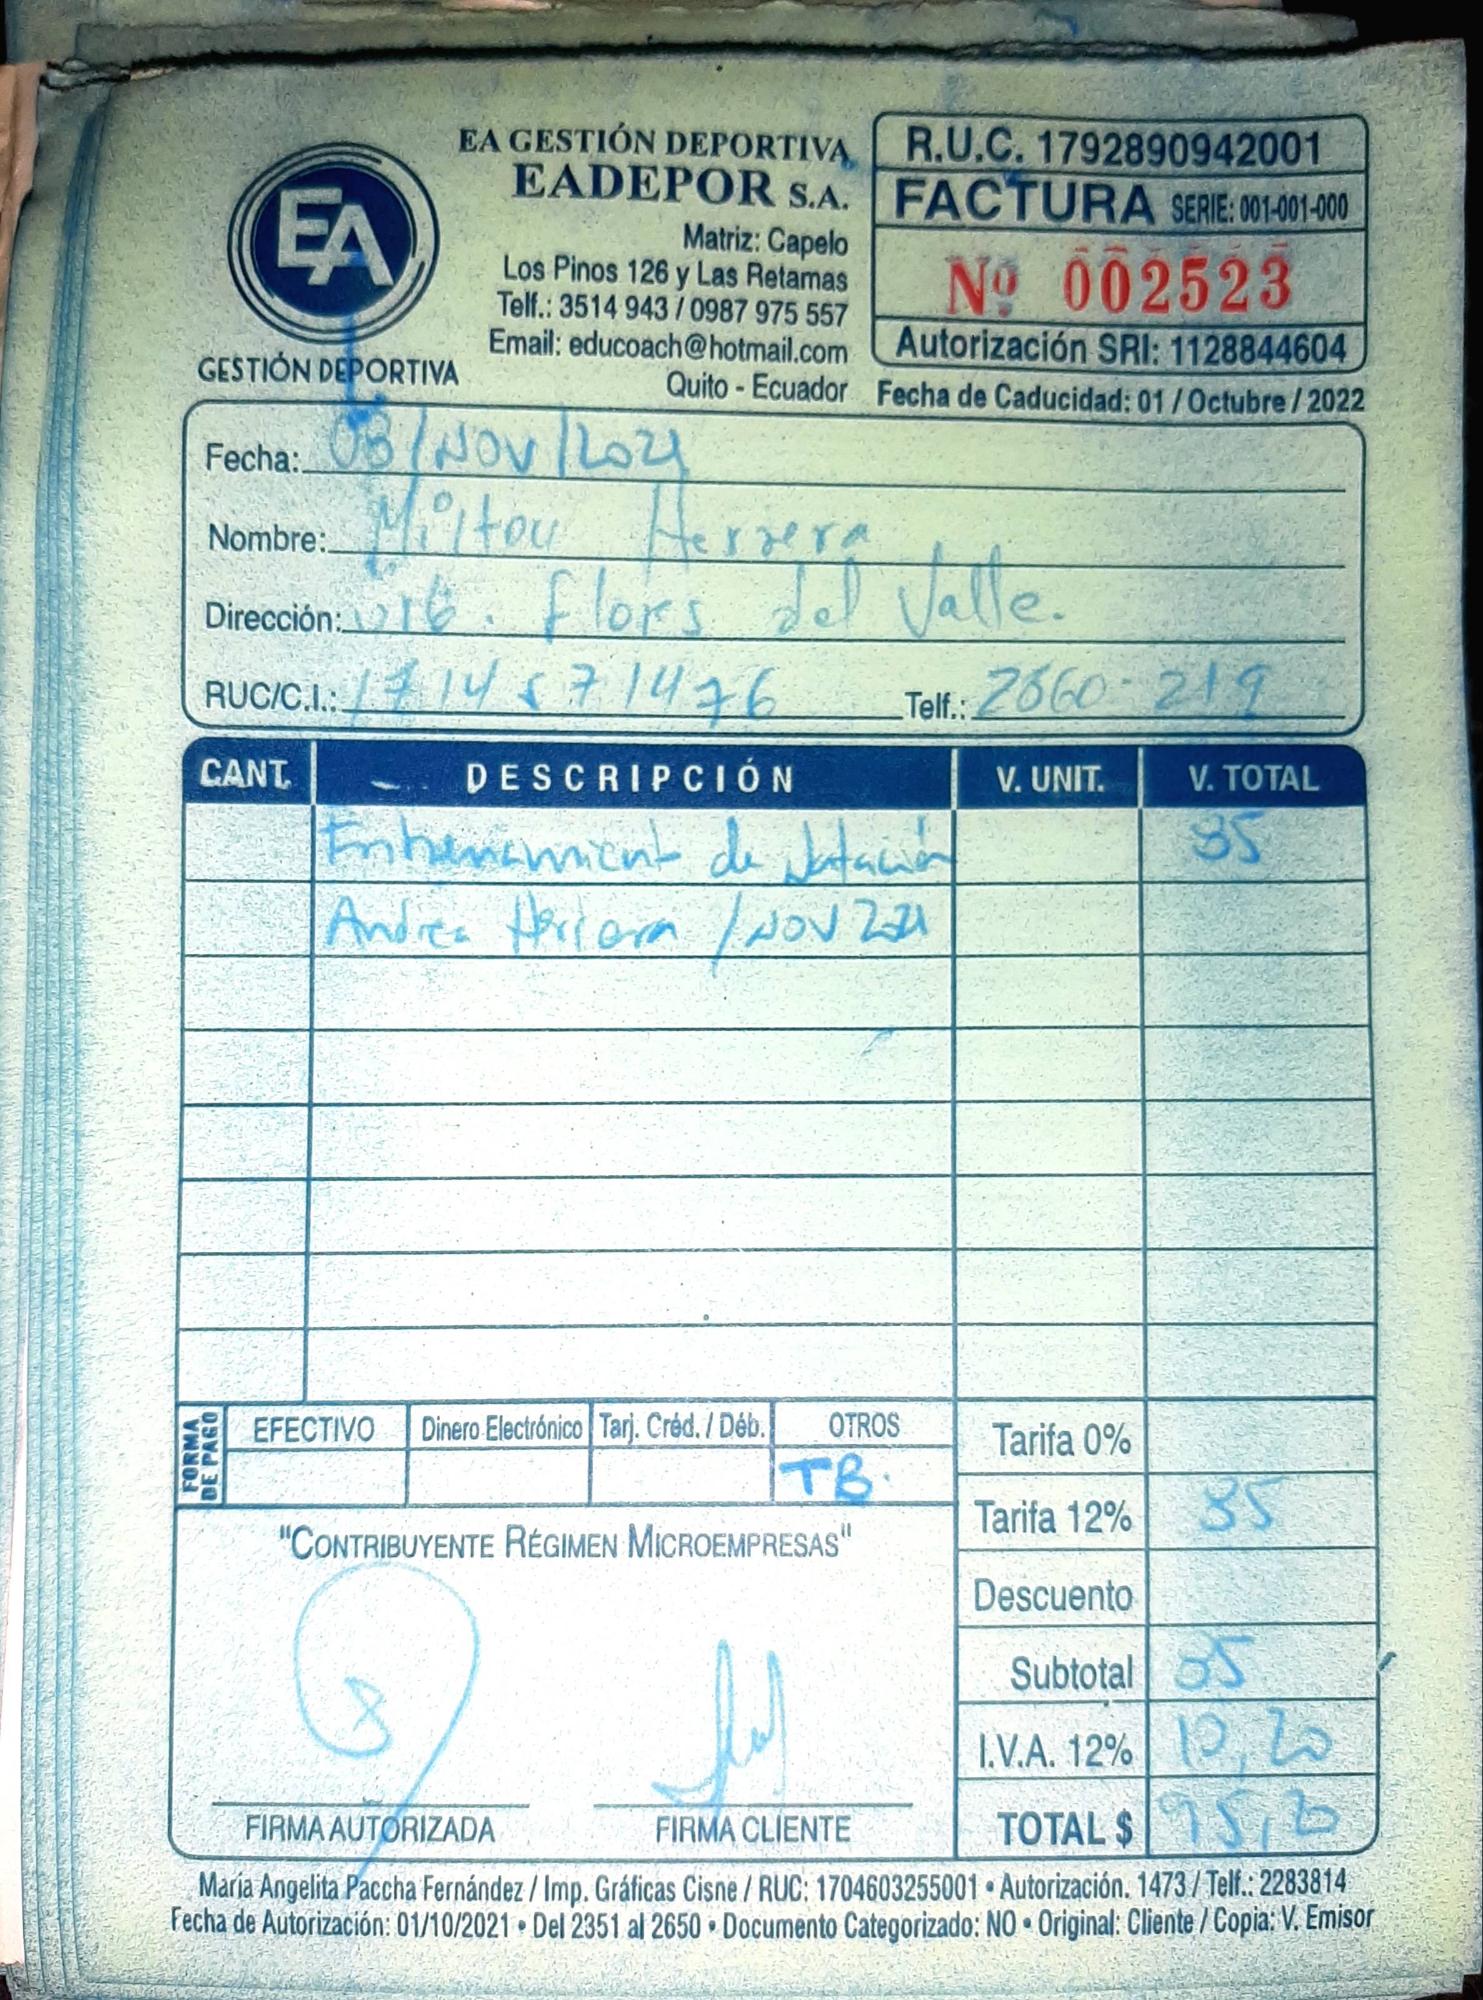 EA
GESTIÓN DEPORTIVA
EA GESTIÓN DEPORTIVA
EADEPOR S.A.
Matriz: Capelo
Los Pinos 126 y Las Retamas
Telf.: 3514 943 / 0987 975 557
Email: educoach@hotmail.com
Quito - Ecuador
R.U.C. 1792890942001
FACTURA SERIE: 001-001-000
Nº 002523
Autorización SRI: 1128844604
Fecha de Caducidad: 01 / Octubre / 2022
Fecha: 03/NOV/2021
Nombre: Milton Herrera
Dirección: urb. Flores del Valle.
RUC/C.I.: 1714571476 Telf.: 2860-219
CANT. DESCRIPCIÓN V. UNIT. V. TOTAL
Entrenamient de Natación 85
Andrea Herrera / NOV 2021
FORMA DE PAGO
EFECTIVO Dinero Electrónico Tarj. Créd. / Déb. OTROS
TB.
Tarifa 0%
Tarifa 12% 85
Descuento
Subtotal 85
I.V.A. 12% 10,20
TOTAL $ 95,20
"CONTRIBUYENTE RÉGIMEN MICROEMPRESAS"
FIRMA AUTORIZADA FIRMA CLIENTE
María Angelita Paccha Fernández / Imp. Gráficas Cisne / RUC: 1704603255001 • Autorización. 1473 / Telf.: 2283814
Fecha de Autorización: 01/10/2021 • Del 2351 al 2650 • Documento Categorizado: NO • Original: Cliente / Copia: V. Emisor